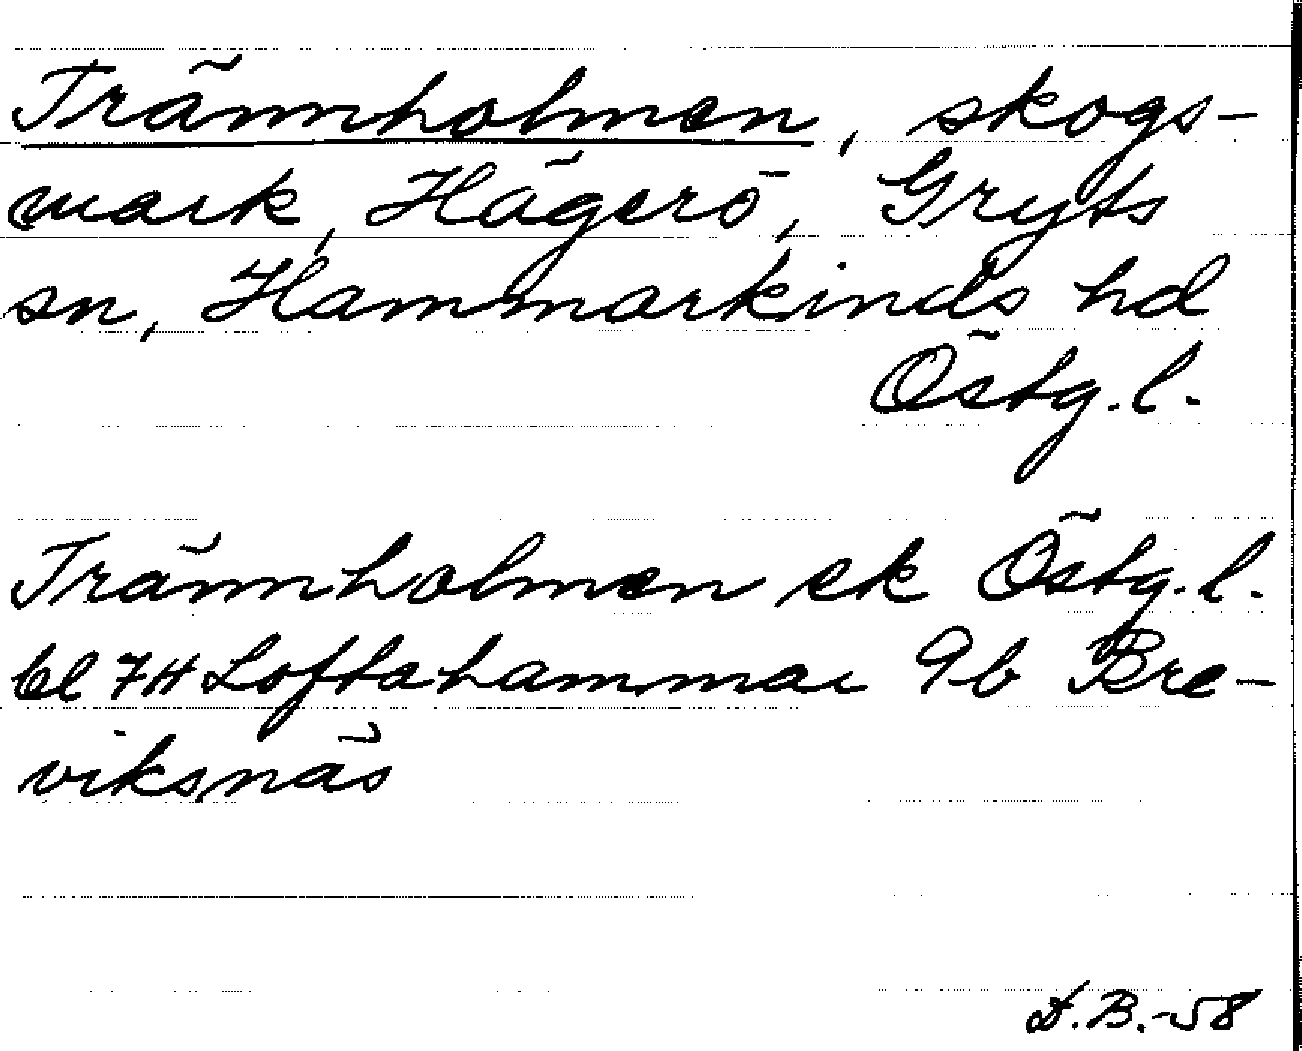 Trännholmen, skogs-
mark, Hägerö, Gryts
sn, Hammarkinds hd
Östg.l.
Trännholmen ek Östg.l.
bl 7H Loftahammar 9b Bre-
viksnäs
D.B.-58